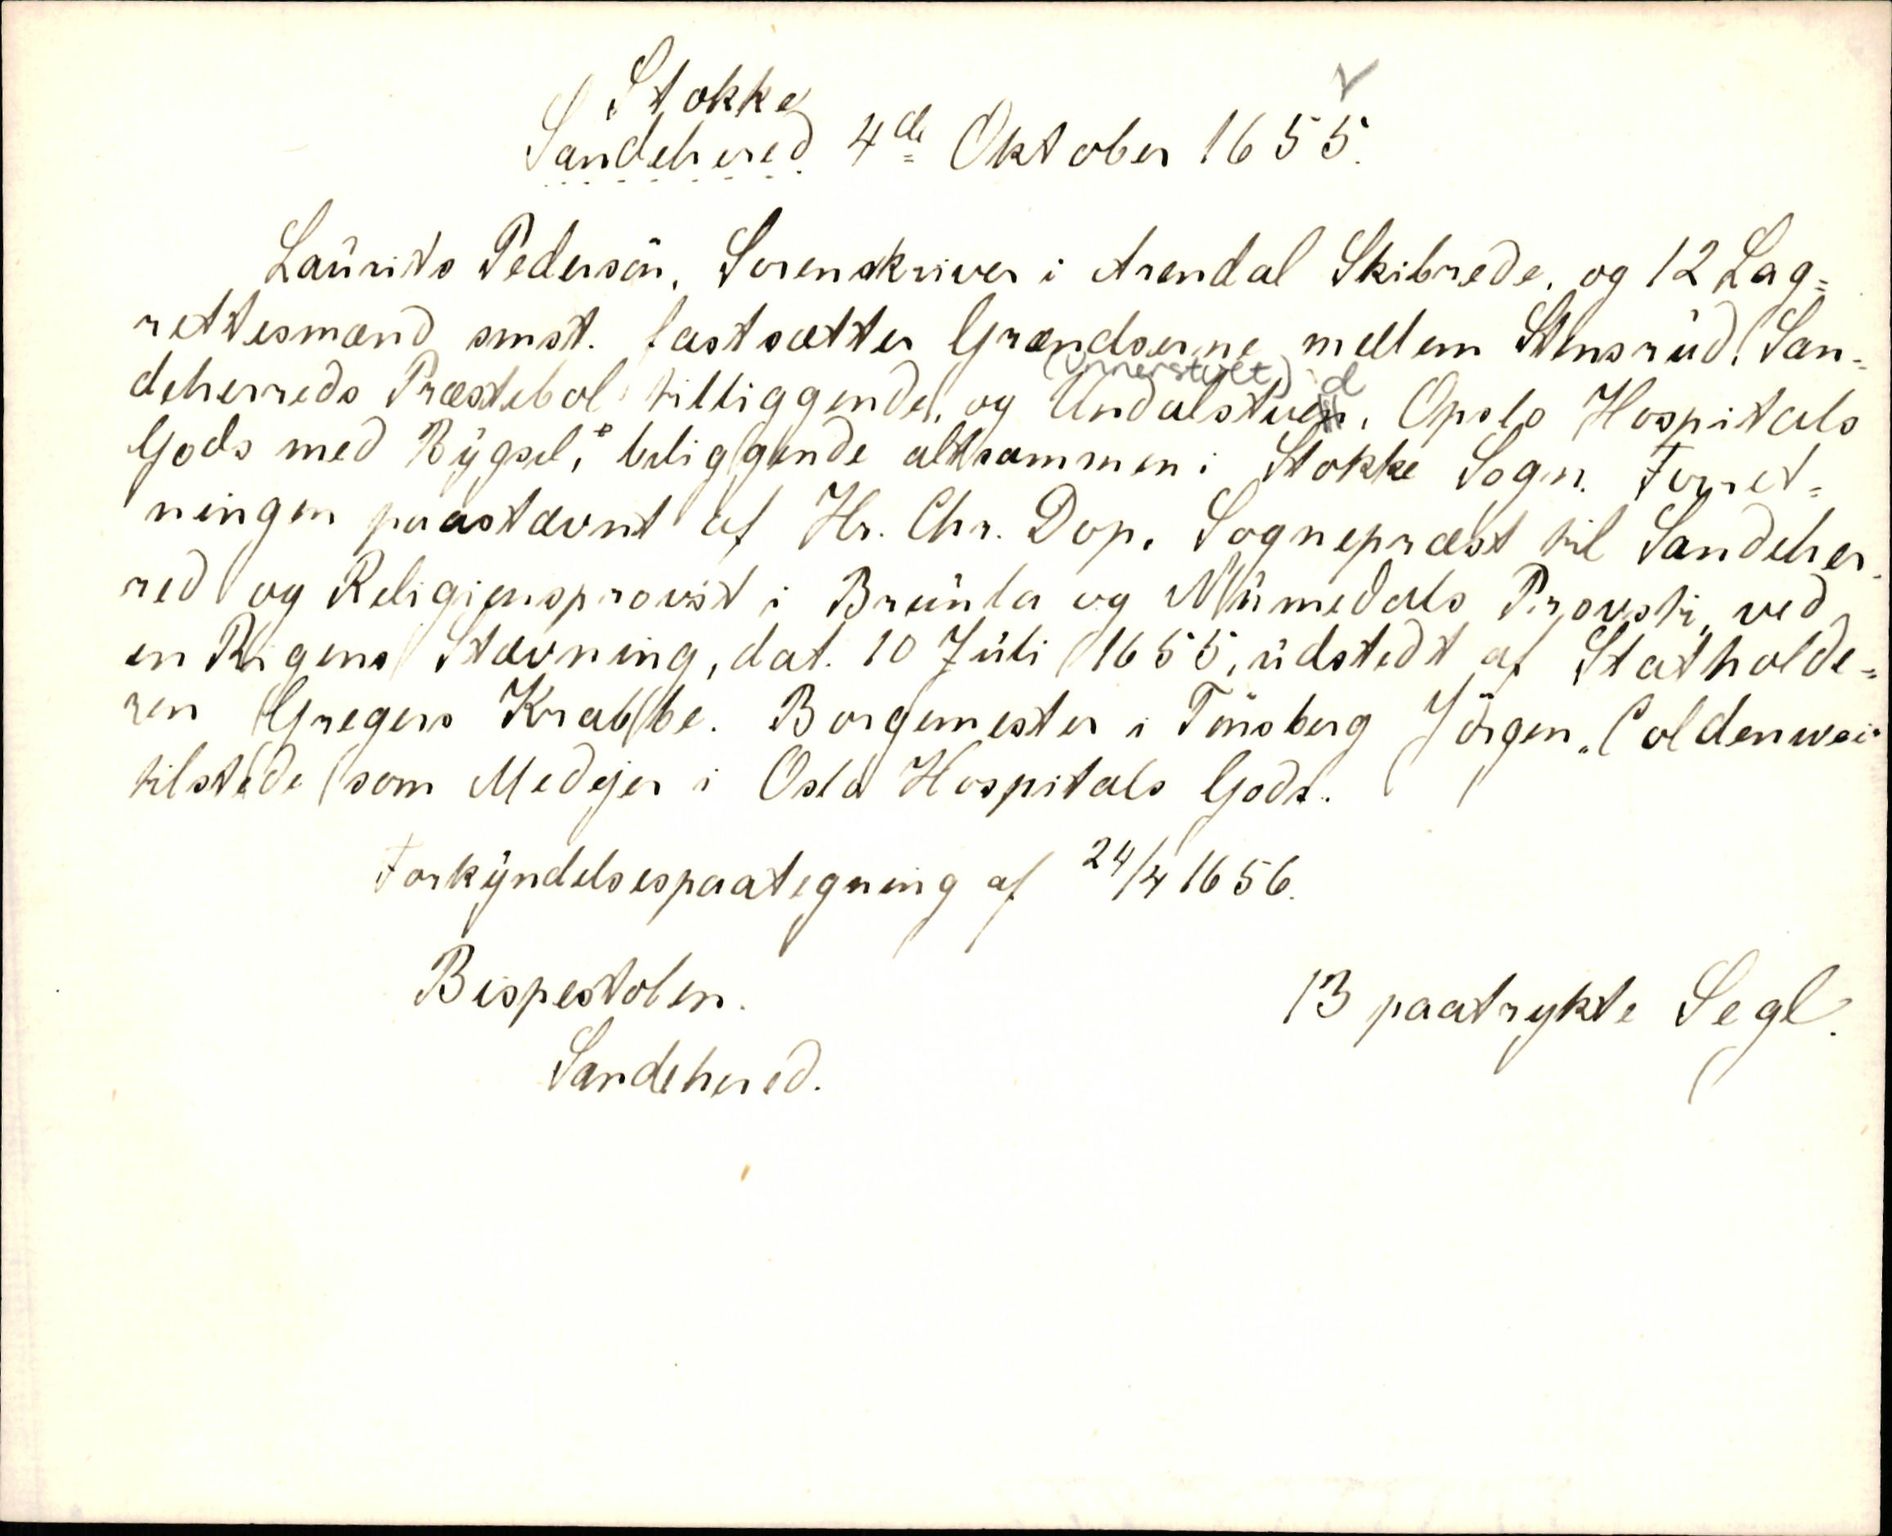 Stokke
Sandehered 4de Oktober 1655.
Laurits Pedersön, Sorenskriver i Arendal Skibrede, og 12 Lag=
rettesmænd smst. fastsætter Grændserne mellem Stensrud, San-
(Unnerstvet) d
deherreds Præstebol tilliggende, og Undalstuen, Opslo Hospitals
Gods med Bygsel, beliggende altsammen i Stokke Sogn. Forret=
ningen paastævnt af Hr. Chr. Dop, Sognepræst til Sandeher-
red og Religionsprovst i Brunla og Numedals Provsti, ved
en Rigens Stævning, dat. 10 Juli 1655, udstedt af Statholde=
ren Gregers Krabbe. Borgemester i Tönsberg Jörgen Coldenwei
tilstede som Medejer i Oslo Hospitals Gods.
Forkyndelsespaategning af 24/4 1656.
Bispestolen.
13 paatrykte Segl.
Sandehered.